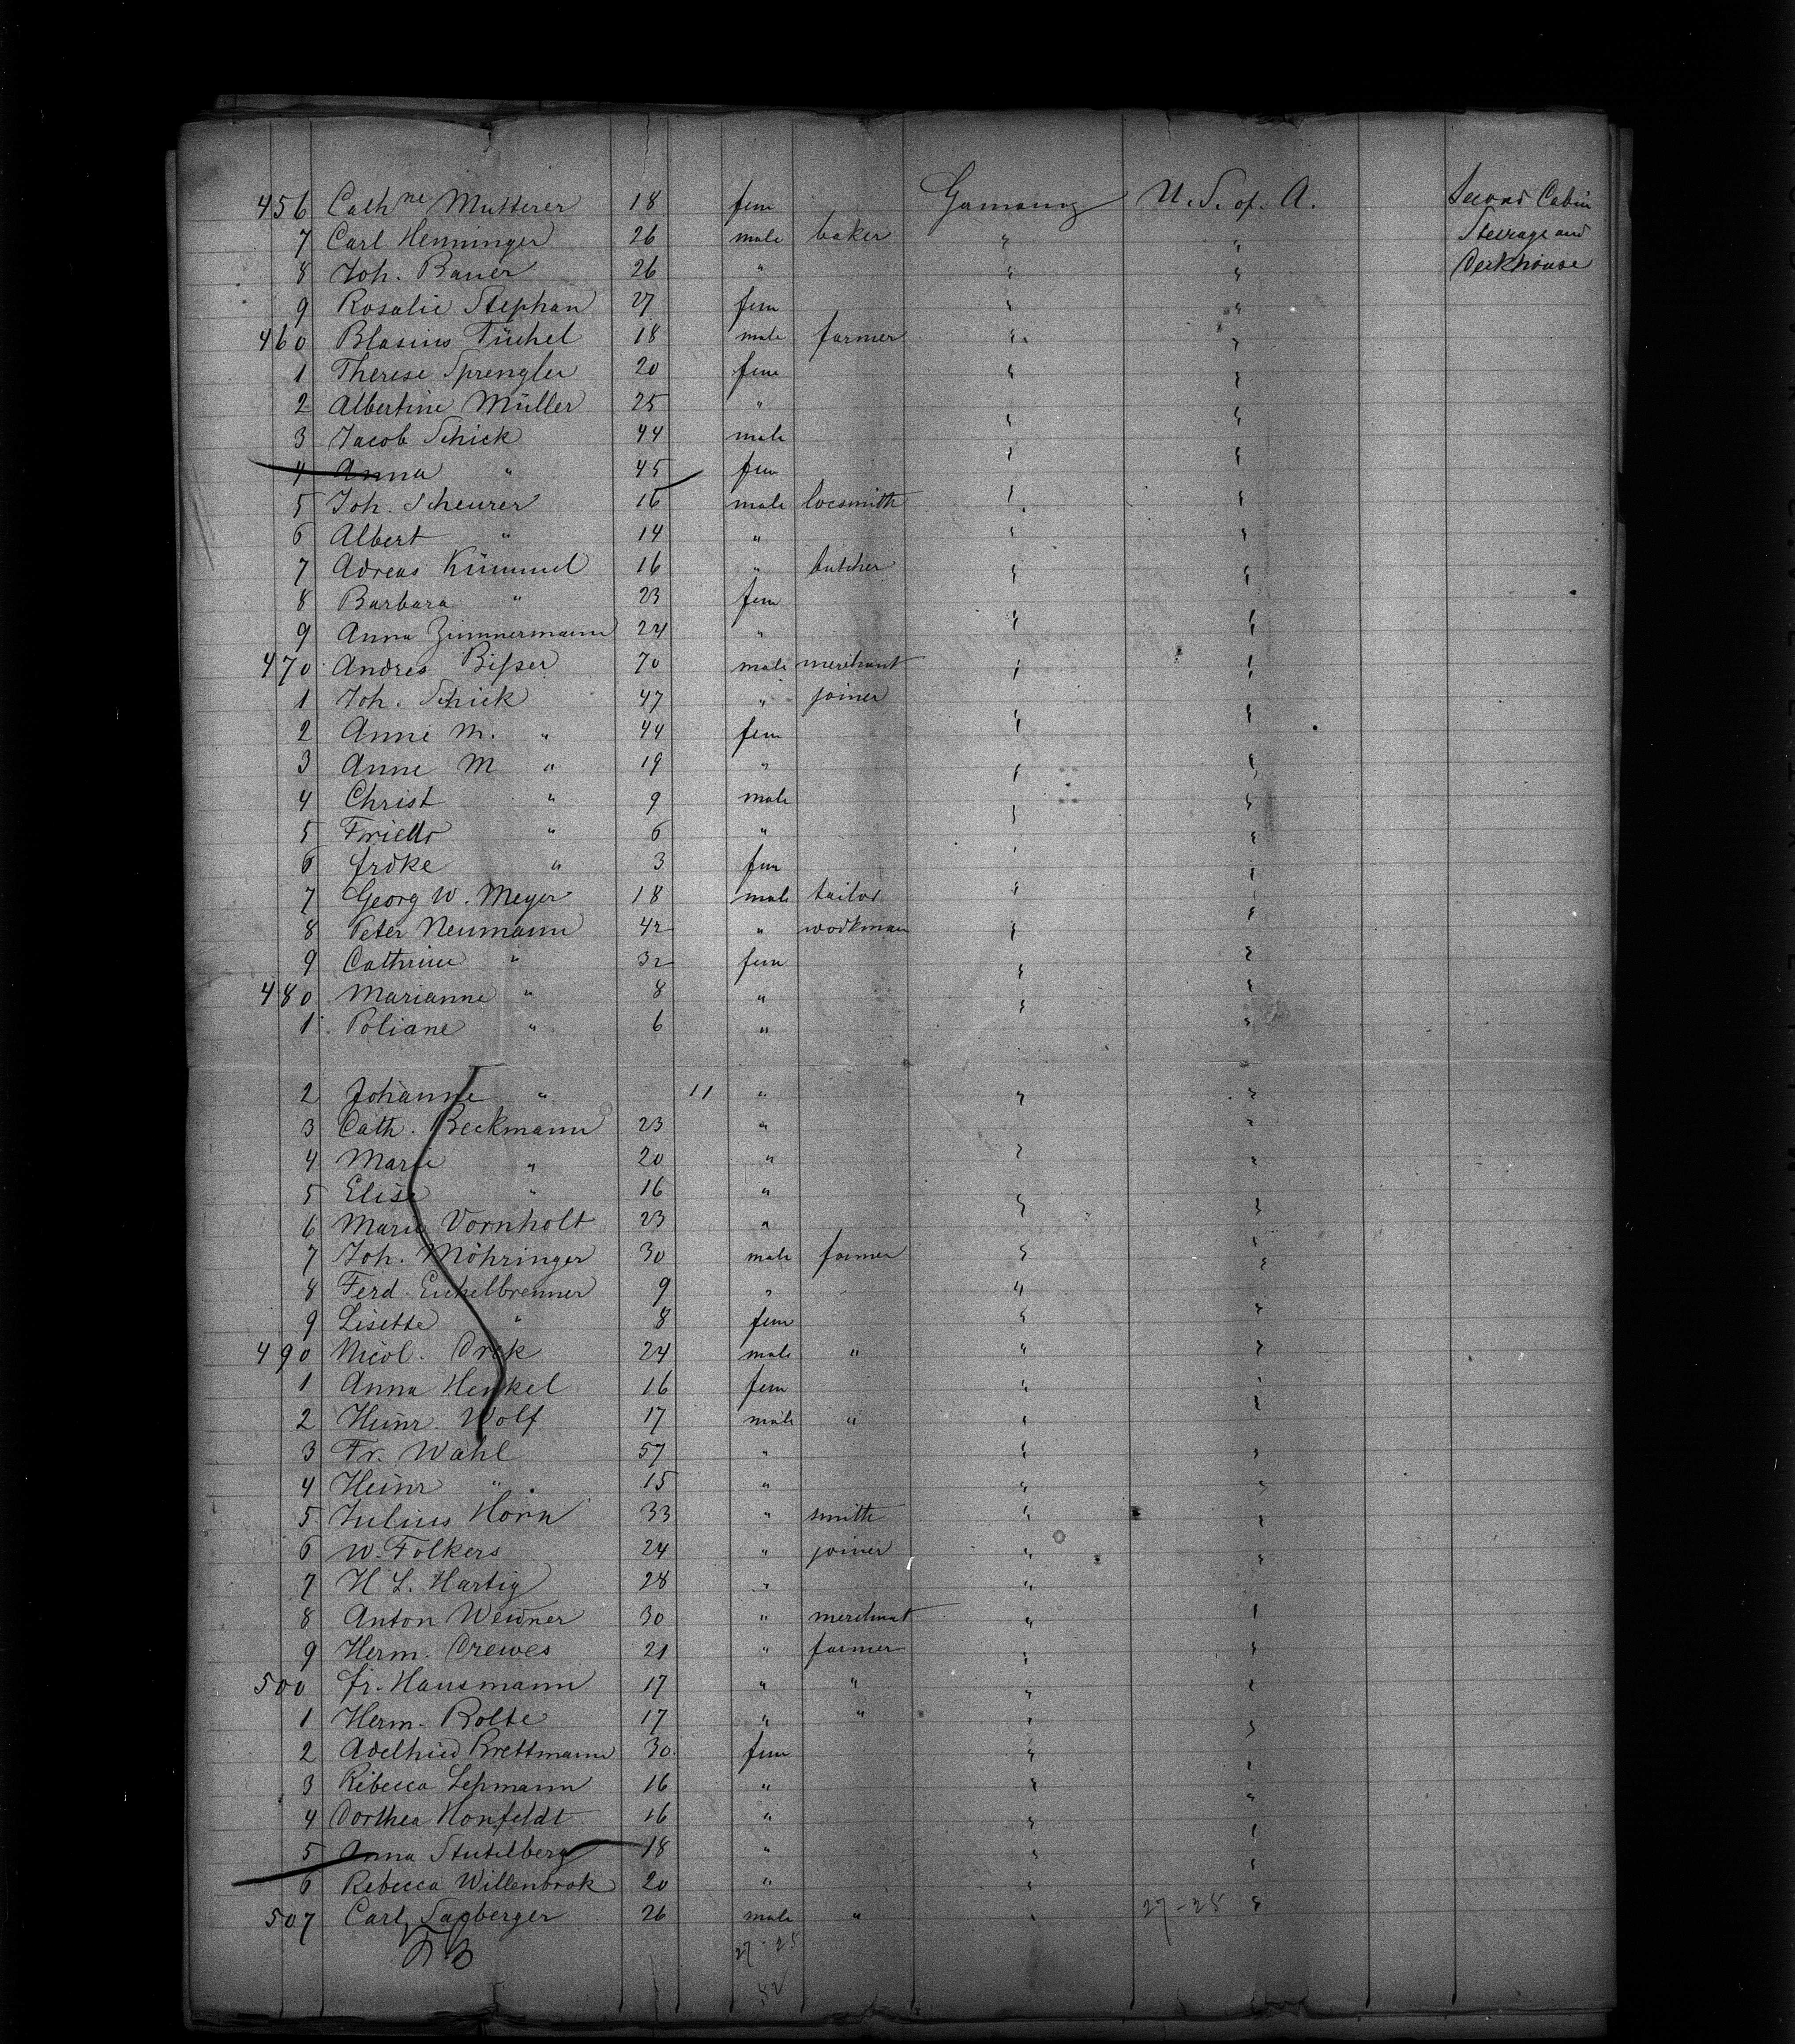 456 Cathne Mutterer 18 fem Germany U. S. of. A. Second Cabin
7 Carl Henninger 26 male baker " " Steerage and
8 Joh. Bauer 26 " " " Deckhouse
9 Rosalie Stephan 27 fem " "
460 Blasius Tüchel 18 male farmer " "
1 Therese Sprengler 20 fem " "
2 Albertine Müller 25 " " "
3 Jacob Schick 44 male " "
4 Anna " 45 fem " "
5 Joh. Scheurer 16 male locsmith " "
6 Albert " 14 " " "
7 Adreas Kümmel 16 " butcher " "
8 Barbara " 23 fem " "
9 Anna Zimmermann 24 " " "
470 Andres Bisser 70 male merchant " "
1 Joh. Schick 47 " joiner " "
2 Anne M. " 44 fem " "
3 Anne M " 19 " " "
4 Christ " 9 male " "
5 " 6 " " "
6 frdke " 3 fem " "
7 Georg W. Meyer 18 male tailor " "
8 Peter Neumann 42 " workman " "
9 Cathrine " 32 fem " "
480 Marianne " 8 " " "
1 Poliane " 6 " " "
2 Johanne " 11 " " "
3 Cath. Beckmann 23 " " "
4 Marie " 20 " " "
5 Elise " 16 " " "
6 Marie Vornholt 23 " " "
7 Joh. Möhringer 30 male farmer " "
8 Ferd. Eichelbrenner 9 " " "
9 Lisette " 8 fem " "
490 Nicol. 24 male " " "
1 Anna Henkel 16 fem " "
2 Heinr. Wolf 17 male " " "
3 Fr. Wahl 57 " " "
4 Heinr " 15 " " "
5 Julius Horn 33 " smith " "
6 W. Folkers 24 " joiner " "
7 H L. Hartig 28 " " "
8 Anton Weidner 30 " merchnat " "
9 Herm. Drewes 21 " farmer " "
500 fr. Hausmann 17 " " " "
1 Herm. Bolte 17 " " " "
2 Adelheid Brettmann 30 fem " "
3 Rebecca Lehmann 16 " " "
4 Dorthea Honfeldt 16 " " "
5 Anna Stutelberg 18 " " "
6 Rebecca Willenbrok 20 " " "
507 Carl 26 male " " 27-28 "
27-25
52